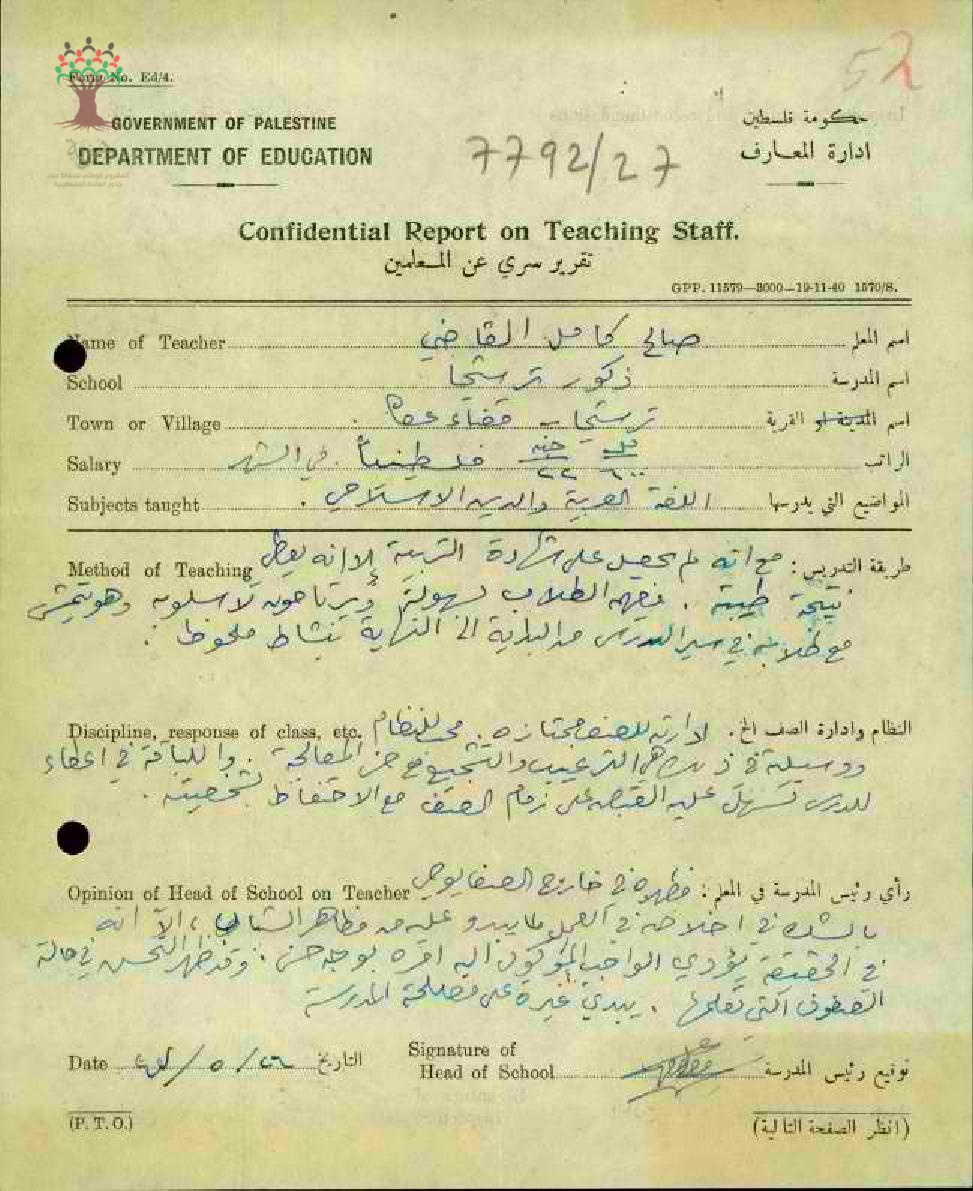 52
Form No. Ed/4.
GOVERNMENT OF PALESTINE
حكومة فلسطين
DEPARTMENT OF EDUCATION
ادارة المعارف
7792/27
Confidential Report on Teaching Staff.
تقرير سري عن المعلمين
GPP. 11579—3000—19-11-40 1570/S.
Name of Teacher صالح كامل القاضي اسم المعلم
School ذكور ترشيحا اسم المدرسة
Town or Village ترشيحا - قضاء عكا اسم المدينة او القرية
Salary مل ٦٠٠ جنيه ٢٢ فلسطينياً في الشهر الراتب
Subjects taught اللغة العربية والدين الاسلامي . المواضيع التي يدرسها
Method of Teaching طريقة التدريس : مع انه لم يحصل على شهادة التربية إلا انه يعطي
نتيجة طيبة . يفهمه الطلاب بسهولة ويرتاحون لاسلوبه وهو يتمشى
مع طلابه في سير الدرس من البداية الى النهاية بنشاط ملحوظ .
Discipline, response of class, etc. النظام وادارة الصف الخ . ادارته للصف ممتازة . محب للنظام
ووسيلته في ذلك هي الترغيب والتشجيع مع حزم المعالجة . واللباقة في اعطاء
الدرس تسهل عليه القبض على زمام الصف مع الاحتفاظ بشخصيته .
Opinion of Head of School on Teacher رأي رئيس المدرسة في المعلم : مظهره في خارج الصف يوحي
بالشك في اخلاصه في العمل لما يبدو عليه من مظاهر الشباب ، الا انه
في الحقيقة يؤدي الواجب الموكول اليه امره بوجه حسن . وقد ظهر التحسن في حالة
الصفوف التي تعلمها . يبدي غيرة على مصلحة المدرسة
Date التاريخ
Signature of
Head of School توقيع رئيس المدرسة
(P. T. O.)
(انظر الصفحة التالية)